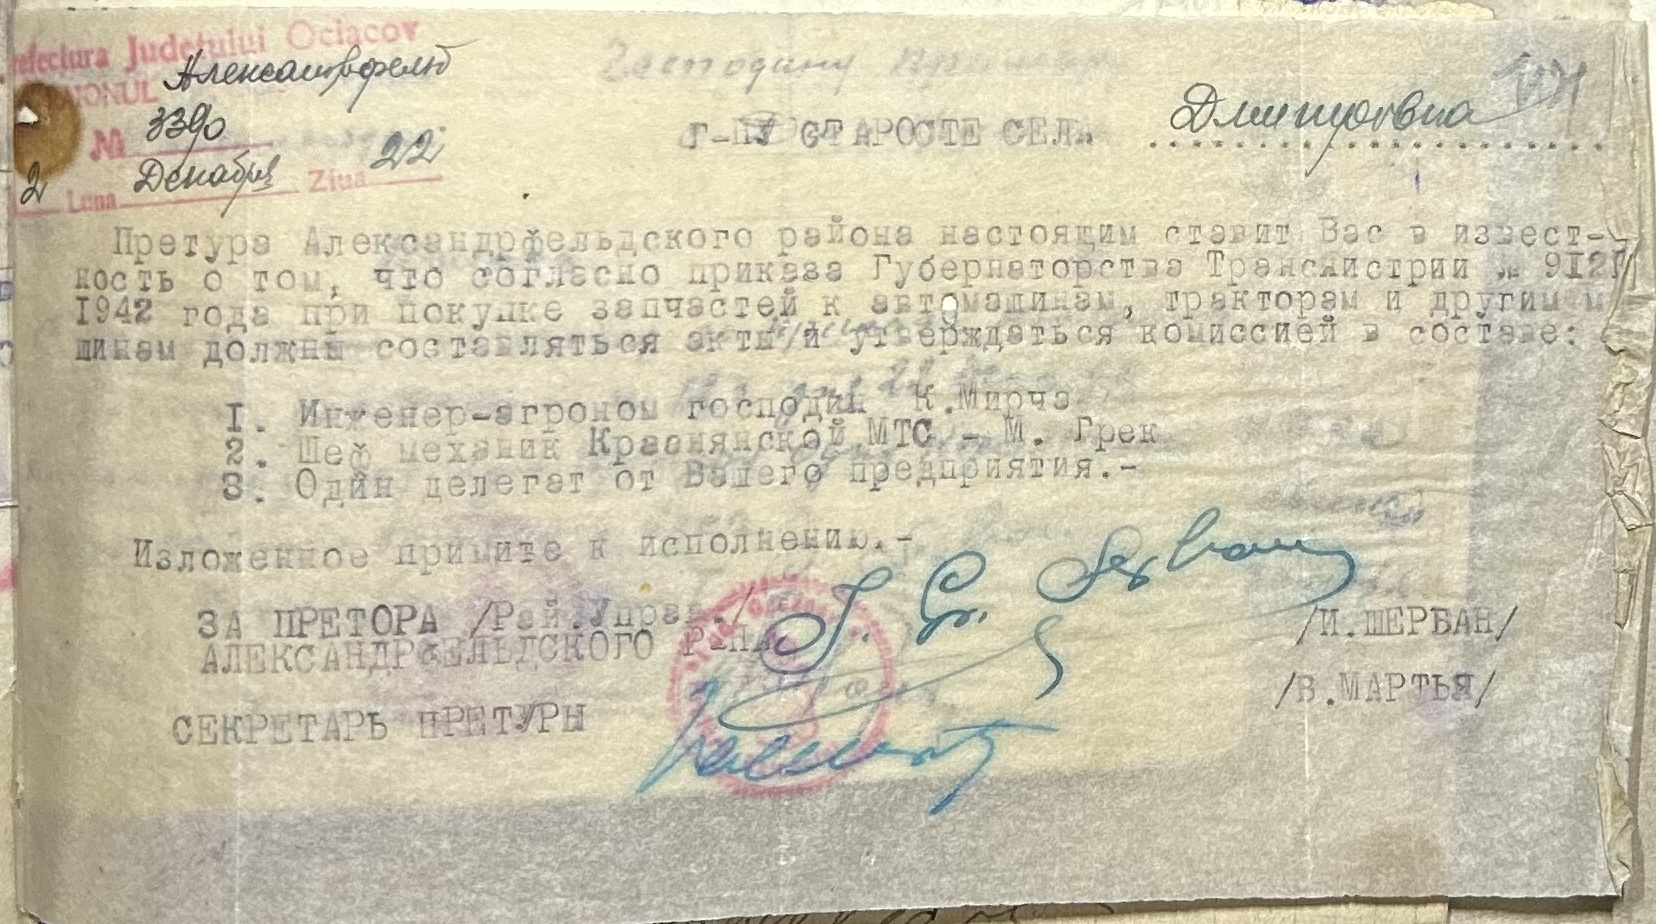 Prefectura Judeţului Ociacov
Александрфельд
№ 3390
2 Luna Декабря Ziua 22
Г-НУ СТАРОСТЕ СЕЛА Дмитровка
Претура Александрфельдского района настоящим ставит Вас в извест-
ность о том, что согласно приказа Губернаторства Транснистрии №
1942 года при покупке запчастей к автомашинам, тракторам и другим м
шинам должны составляться акты и утверждаться комиссией в составе:
1. Инженер-агроном господин К.Мирча
2. Шеф механик Краснянской МТС - М. Грек
3. Один делегат от Вашего предприятия.-
Изложенное примите к исполнению.-
ЗА ПРЕТОРА /Рай.Управ./ /И.ШЕРБАН/
АЛЕКСАНДРФЕЛЬДСКОГО Р-НА
СЕКРЕТАРЬ ПРЕТУРЫ /В.МАРТЬЯ/